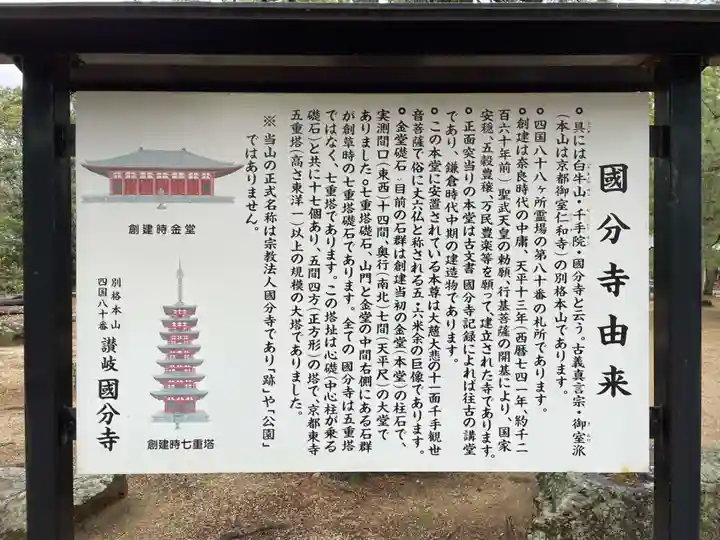 國分寺由来
◦ 具には白牛山・千手院・國分寺と云う。古義真言宗・御室派
(本山は京都御室仁和寺)の別格本山であります。
◦ 四国八十八ヶ所霊場の第八十番の札所であります。
◦ 創建は奈良時代の中庸、天平十三年(西暦七四一年、約千二
百六十年前)聖武天皇の勅願、行基菩薩の開基により、国家
安穏、五穀豊穣、万民豊楽等を願って、建立された寺であります。
◦ 正面突当りの本堂は古文書、國分寺記録によれば往古の講堂
であり、鎌倉時代中期の建造物であります。
◦ この本堂に安置されている本尊は大慈大悲の十一面千手観世
音菩薩で俗に丈六仏と称される五・六米余の巨像であります。
◦ 金堂礎石、目前の石群は創建当初の金堂(本堂)の柱石で、
実測間口(東西)十四間、奥行(南北)七間(天平尺)の大堂で
ありました。◦七重塔礎石、山門と金堂の中間右側にある石群
が創草時の七重塔礎石であります。全ての國分寺は五重塔
ではなく、七重塔であります。この塔址は心礎(中心柱が乗る
礎石)と共に十七個あり、五間四方(正方形)の塔で、京都東寺
五重塔(高さ東洋一)以上の規模の大塔でありました。
※ 当山の正式名称は宗教法人國分寺であり「跡」や「公園」
ではありません。
創建時金堂
創建時七重塔
別格本山
四国八十番
讃岐 國分寺